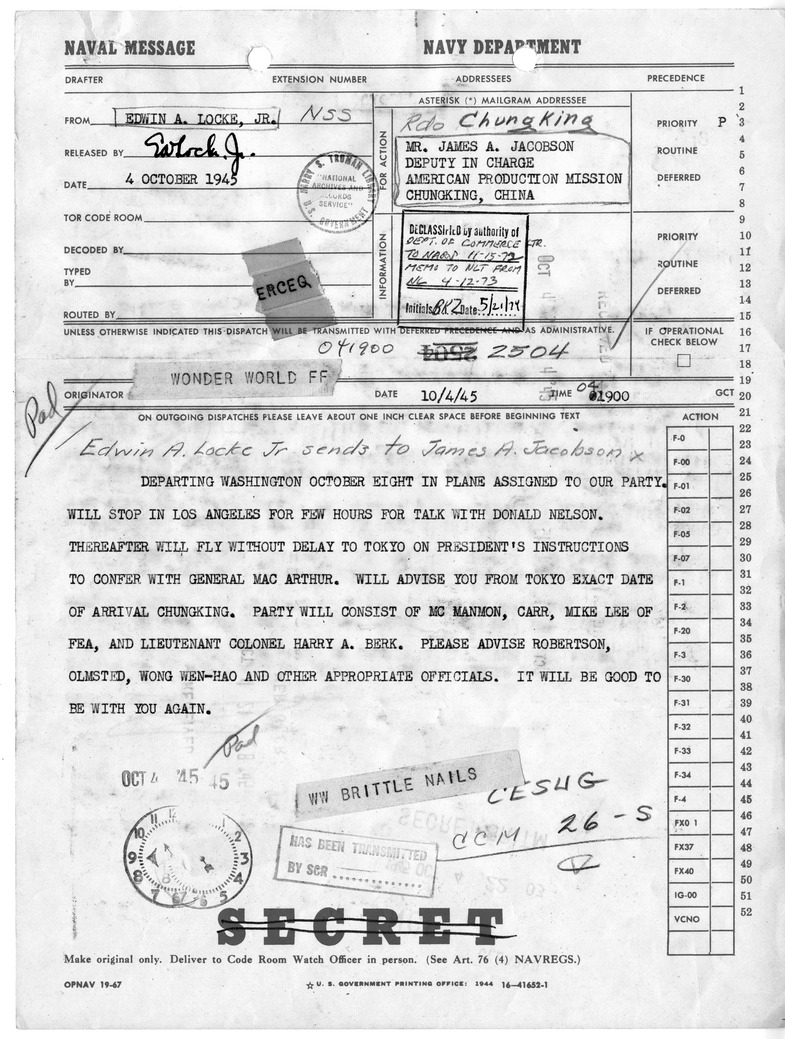 NAVAL MESSAGE NAVY DEPARTMENT
DRAFTER EXTENSION NUMBER ADDRESSEES PRECEDENCE
FROM EDWIN A. LOCKE, JR. NSS
RELEASED BY EALocke Jr.
DATE 4 OCTOBER 1945
TOR CODE ROOM
DECODED BY
TYPED
BY
ROUTED BY
HARRY S. TRUMAN LIBRARY
"NATIONAL
ARCHIVES AND
RECORDS
SERVICE"
U.S. GOVERNMENT
ERCEQ
FOR ACTION
INFORMATION
ASTERISK (*) MAILGRAM ADDRESSEE
Rdo Chungking
MR. JAMES A. JACOBSON
DEPUTY IN CHARGE
AMERICAN PRODUCTION MISSION
CHUNGKING, CHINA
DECLASSIFIED by authority of
DEPT. OF COMMERCE LTR.
TO NARS 11-15-72
MEMO TO NLT FROM
NL 4-12-73
Initials BKZ Date: 5/21/74
PRIORITY P
ROUTINE
DEFERRED
PRIORITY
ROUTINE
DEFERRED
1
2
3
4
5
6
7
8
9
10
11
12
13
14
15
16
17
18
19
20
21
22
23
24
25
26
27
28
29
30
31
32
33
34
35
36
37
38
39
40
41
42
43
44
45
46
47
48
49
50
51
52
UNLESS OTHERWISE INDICATED THIS DISPATCH WILL BE TRANSMITTED WITH DEFERRED PRECEDENCE AND AS ADMINISTRATIVE.
IF OPERATIONAL
CHECK BELOW
041900 2504 2504
ORIGINATOR WONDER WORLD FF DATE 10/4/45 TIME 04 1900 GCT
Pad
ON OUTGOING DISPATCHES PLEASE LEAVE ABOUT ONE INCH CLEAR SPACE BEFORE BEGINNING TEXT
Edwin A. Locke Jr sends to James A. Jacobson x
DEPARTING WASHINGTON OCTOBER EIGHT IN PLANE ASSIGNED TO OUR PARTY.
WILL STOP IN LOS ANGELES FOR FEW HOURS FOR TALK WITH DONALD NELSON.
THEREAFTER WILL FLY WITHOUT DELAY TO TOKYO ON PRESIDENT'S INSTRUCTIONS
TO CONFER WITH GENERAL MAC ARTHUR. WILL ADVISE YOU FROM TOKYO EXACT DATE
OF ARRIVAL CHUNGKING. PARTY WILL CONSIST OF MC MANMON, CARR, MIKE LEE OF
FEA, AND LIEUTENANT COLONEL HARRY A. BERK. PLEASE ADVISE ROBERTSON,
OLMSTED, WONG WEN-HAO AND OTHER APPROPRIATE OFFICIALS. IT WILL BE GOOD TO
BE WITH YOU AGAIN.
ACTION
F-0
F-00
F-01
F-02
F-05
F-07
F-1
F-2
F-20
F-3
F-30
F-31
F-32
F-33
F-34
F-4
FX0 1
FX37
FX40
IG-00
VCNO
Pad
OCT 4 '45 45
WW BRITTLE NAILS
CESUG
CCM 26-S
HAS BEEN TRANSMITTED
BY SCR
SECRET
Make original only. Deliver to Code Room Watch Officer in person. (See Art. 76 (4) NAVREGS.)
OPNAV 19-67 ☆ U. S. GOVERNMENT PRINTING OFFICE: 1944 16—41652-1